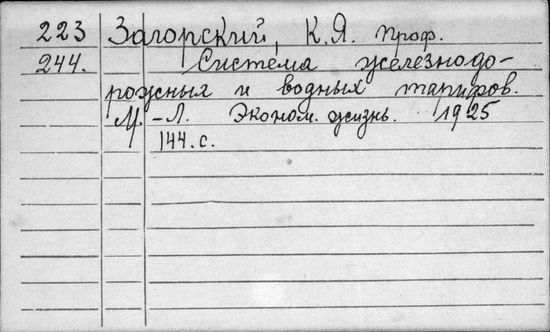 223 Загорский, К.Я. проф.
244. Система железнодо-
рожных и водных тарифов.
М.-Л. Эконом. жизнь. 1925
144.с.